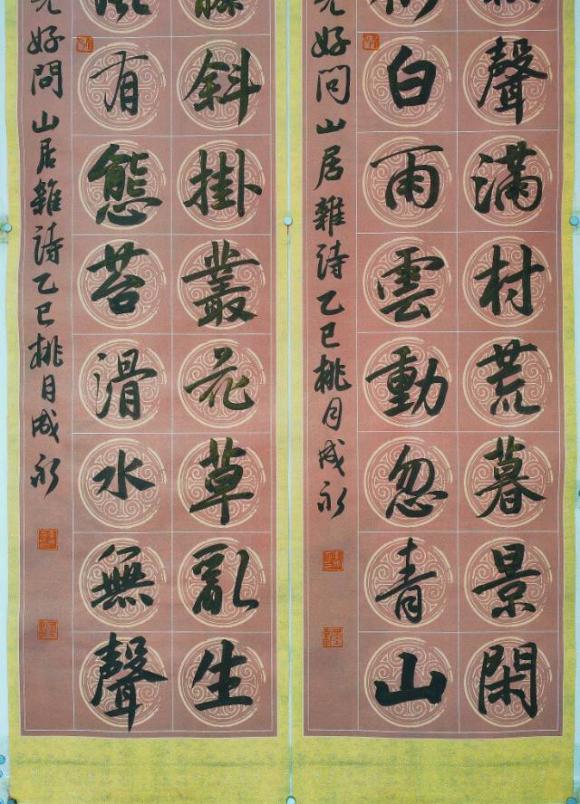 聲滿村荒暮景閑
白雨雲動忽青山
好问山居雜詩乙巳桃月成永
斜掛叢花草亂生
有態苔滑水無聲
好問山居雜詩乙巳桃月成永